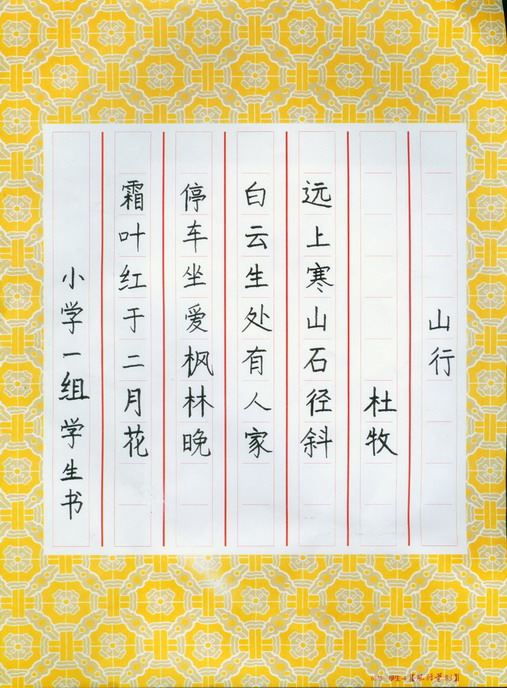 山行
杜牧
远上寒山石径斜
白云生处有人家
停车坐爱枫林晚
霜叶红于二月花
小学一组学生书